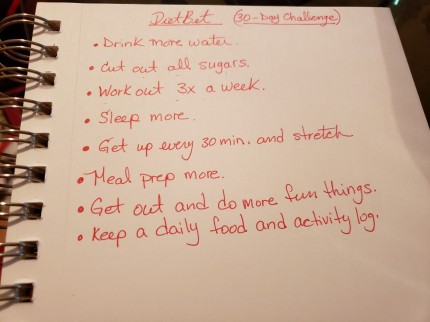 DietBet (30-Day Challenge)
• Drink more water.
• Cut out all sugars.
• Work out 3x a week.
• Sleep more.
• Get up every 30 min. and stretch
• Meal prep more.
• Get out and do more fun things.
• Keep a daily food and activity log.